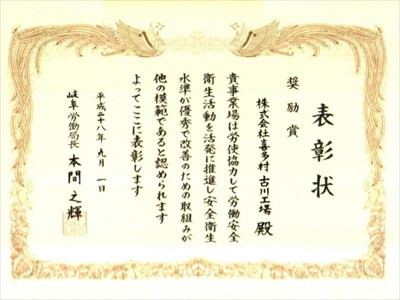 表彰状
奨励賞
株式会社喜多村 古川工場 殿
貴事業場は労使協力して労働安全
衛生活動を活発に推進し安全衛生
水準が優秀で改善のための取組みが
他の模範であると認められます
よってここに表彰します
平成二十八年 九月 一日
岐阜労働局長 本間之輝